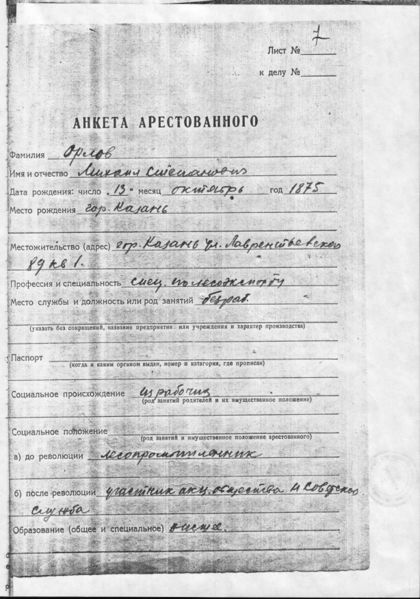 Лист № 7
к делу №
АНКЕТА АРЕСТОВАННОГО
Фамилия Орлов
Имя и отчество Михаил Степанович
Дата рождения: число „13“ месяц октябрь год 1875
Место рождения гор. Казань
Местожительство (адрес) гор. Казань ул. Лаврентьевского
89 кв 1.
Профессия и специальность спец. по лесоэкспорту
Место службы и должность или род занятий безраб.
(указать без сокращений, название предприятия или учреждения и характер производства)
Паспорт
(когда и каким органом выдан, номер и категория, где прописан)
Социальное происхождение из рабочих
(род занятий родителей и их имущественное положение)
Социальное положение
(род занятий и имущественное положение арестованного)
а) до революции лесопромышленник
б) после революции участник акц. общества и Совдеская
служба
Образование (общее и специальное)